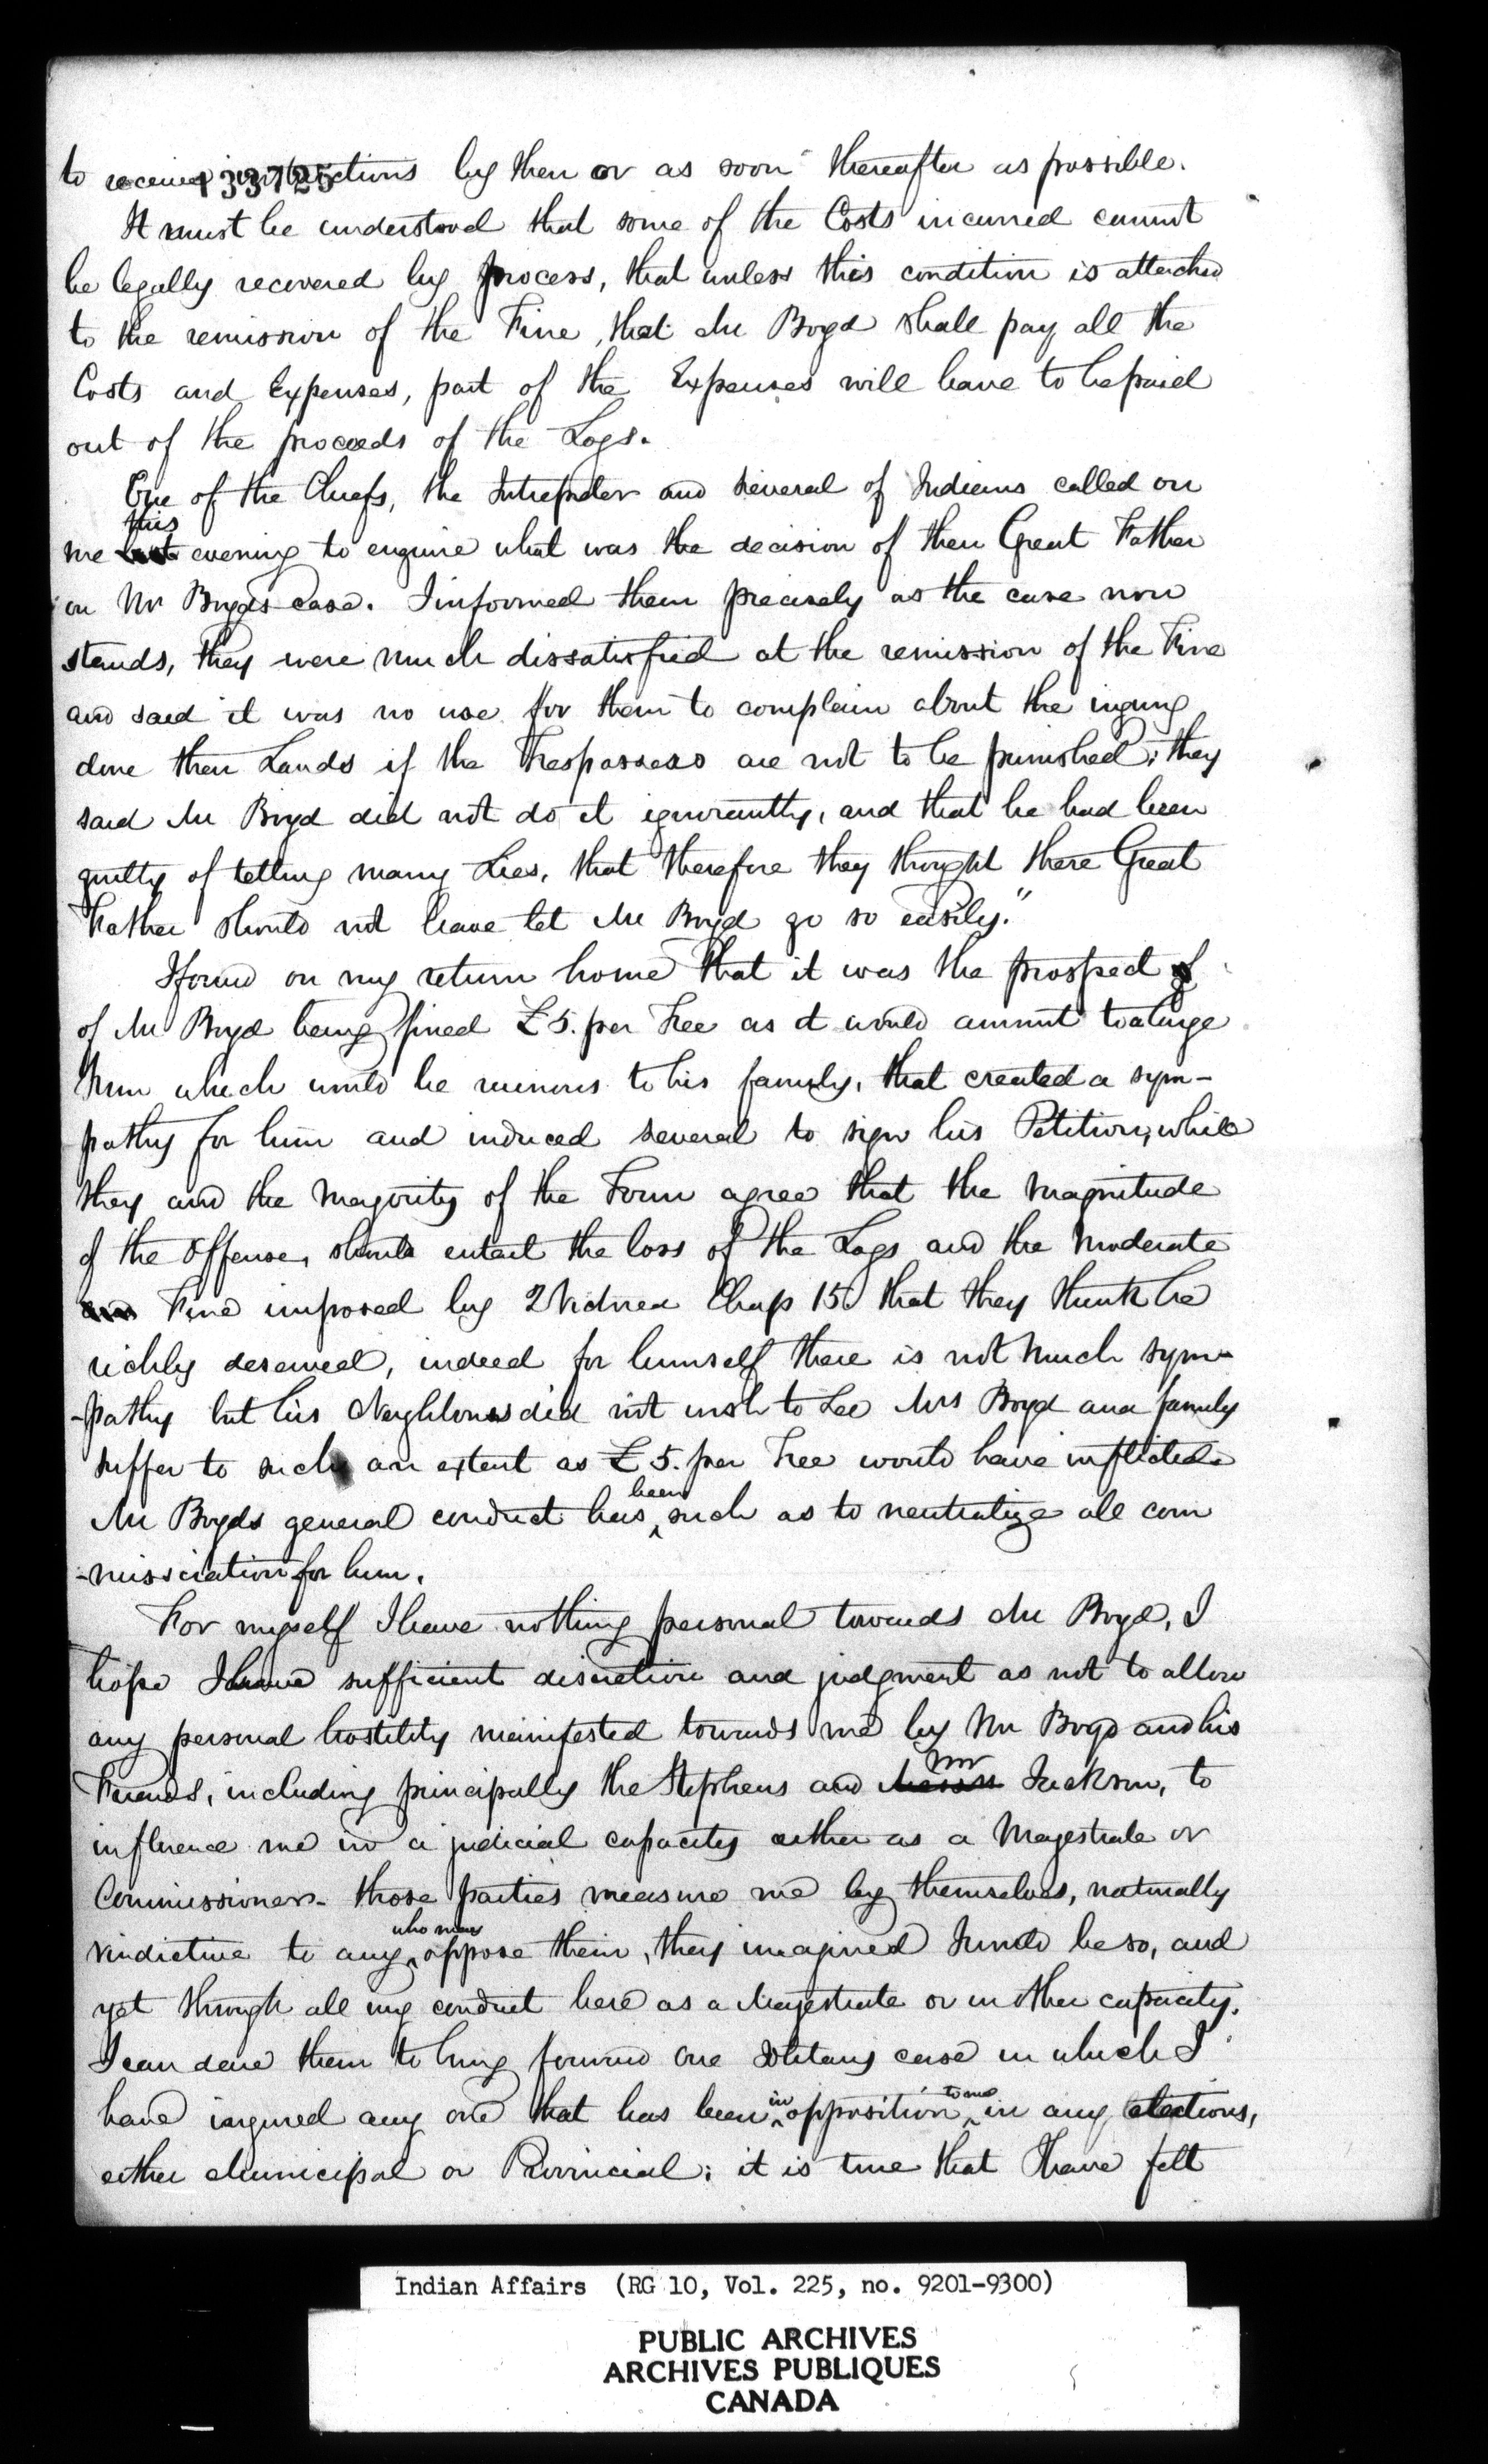 to receive instructions by then or as soon thereafter as possible.
133725
It must be understood that some of the Costs incurred cannot
be legally recovered by process, that unless this condition is attached
to the remission of the Fine, that Mr Boyd shall pay all the
Costs and Expenses, part of the Expenses will have to be paid
out of the proceeds of the Logs.
One of the Chiefs, the Interpreter and several of Indians called on
this
me last evening to enquire what was the decision of their Great Father
on Mr Boyds case. I informed them precisely as the case now
stands, they were much dissatisfied at the remission of the Fine
and said it was no use for them to complain about the injury
done their Lands if the Trespassers are not to be punished; they
said Mr Boyd did not do it ignorantly, and that he had been
guilty of telling many Lies, that therefore they thought there Great
Father should not have let Mr Boyd go so easily."
I found on my return home that it was the prospect of
of Mr Boyd being fined £5. per Tree as it would amount to a large
Sum which would be ruinous to his family, that created a sym-
pathy for him and induced several to sign his Petition, while
they and the Majority of the Town agree that the Magnitude
of the Offense, should entail the loss of the Logs and the Moderate
Fine imposed by 2 Victorea Chap 15. that they think he
richly deserved, indeed for himself there is not much sym-
-pathy but his Neighbours did not wish to see Mrs Boyd and family
suffer to such an extent as £5. per Tree would have inflicted.
been
Mr Boyds general conduct has such as to neutralize all com
-missciation for him.
For myself I have nothing personal towards Mr Boyd, I
hope I have sufficient discretion and judgment as not to allow
any personal hostility manifested towards me by Mr Boyd and his
Mr
Friends, including principally the Stephens and Messrs Jackson, to
influence me in a judicial capacity either as a Magestrate or
Commissioner. those parties measure me by themselves, naturally
who may
vindictive to any oppose them, they imagined I would be so, and
yet through all my conduct here as a Magestrate or in other capacity.
I can dare them to bring forward one Solitary case in which I
in to me
have injured any one that has been opposition in any elections,
either Municipal or Provincial; it is true that I have felt
Indian Affairs (RG 10, Vol. 225, no. 9201-9300)
PUBLIC ARCHIVES
ARCHIVES PUBLIQUES
CANADA